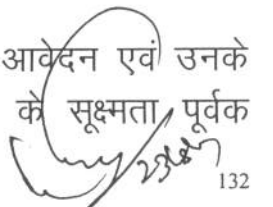 आवेदन एवं उनके
के सूक्ष्मता पूर्वक
132